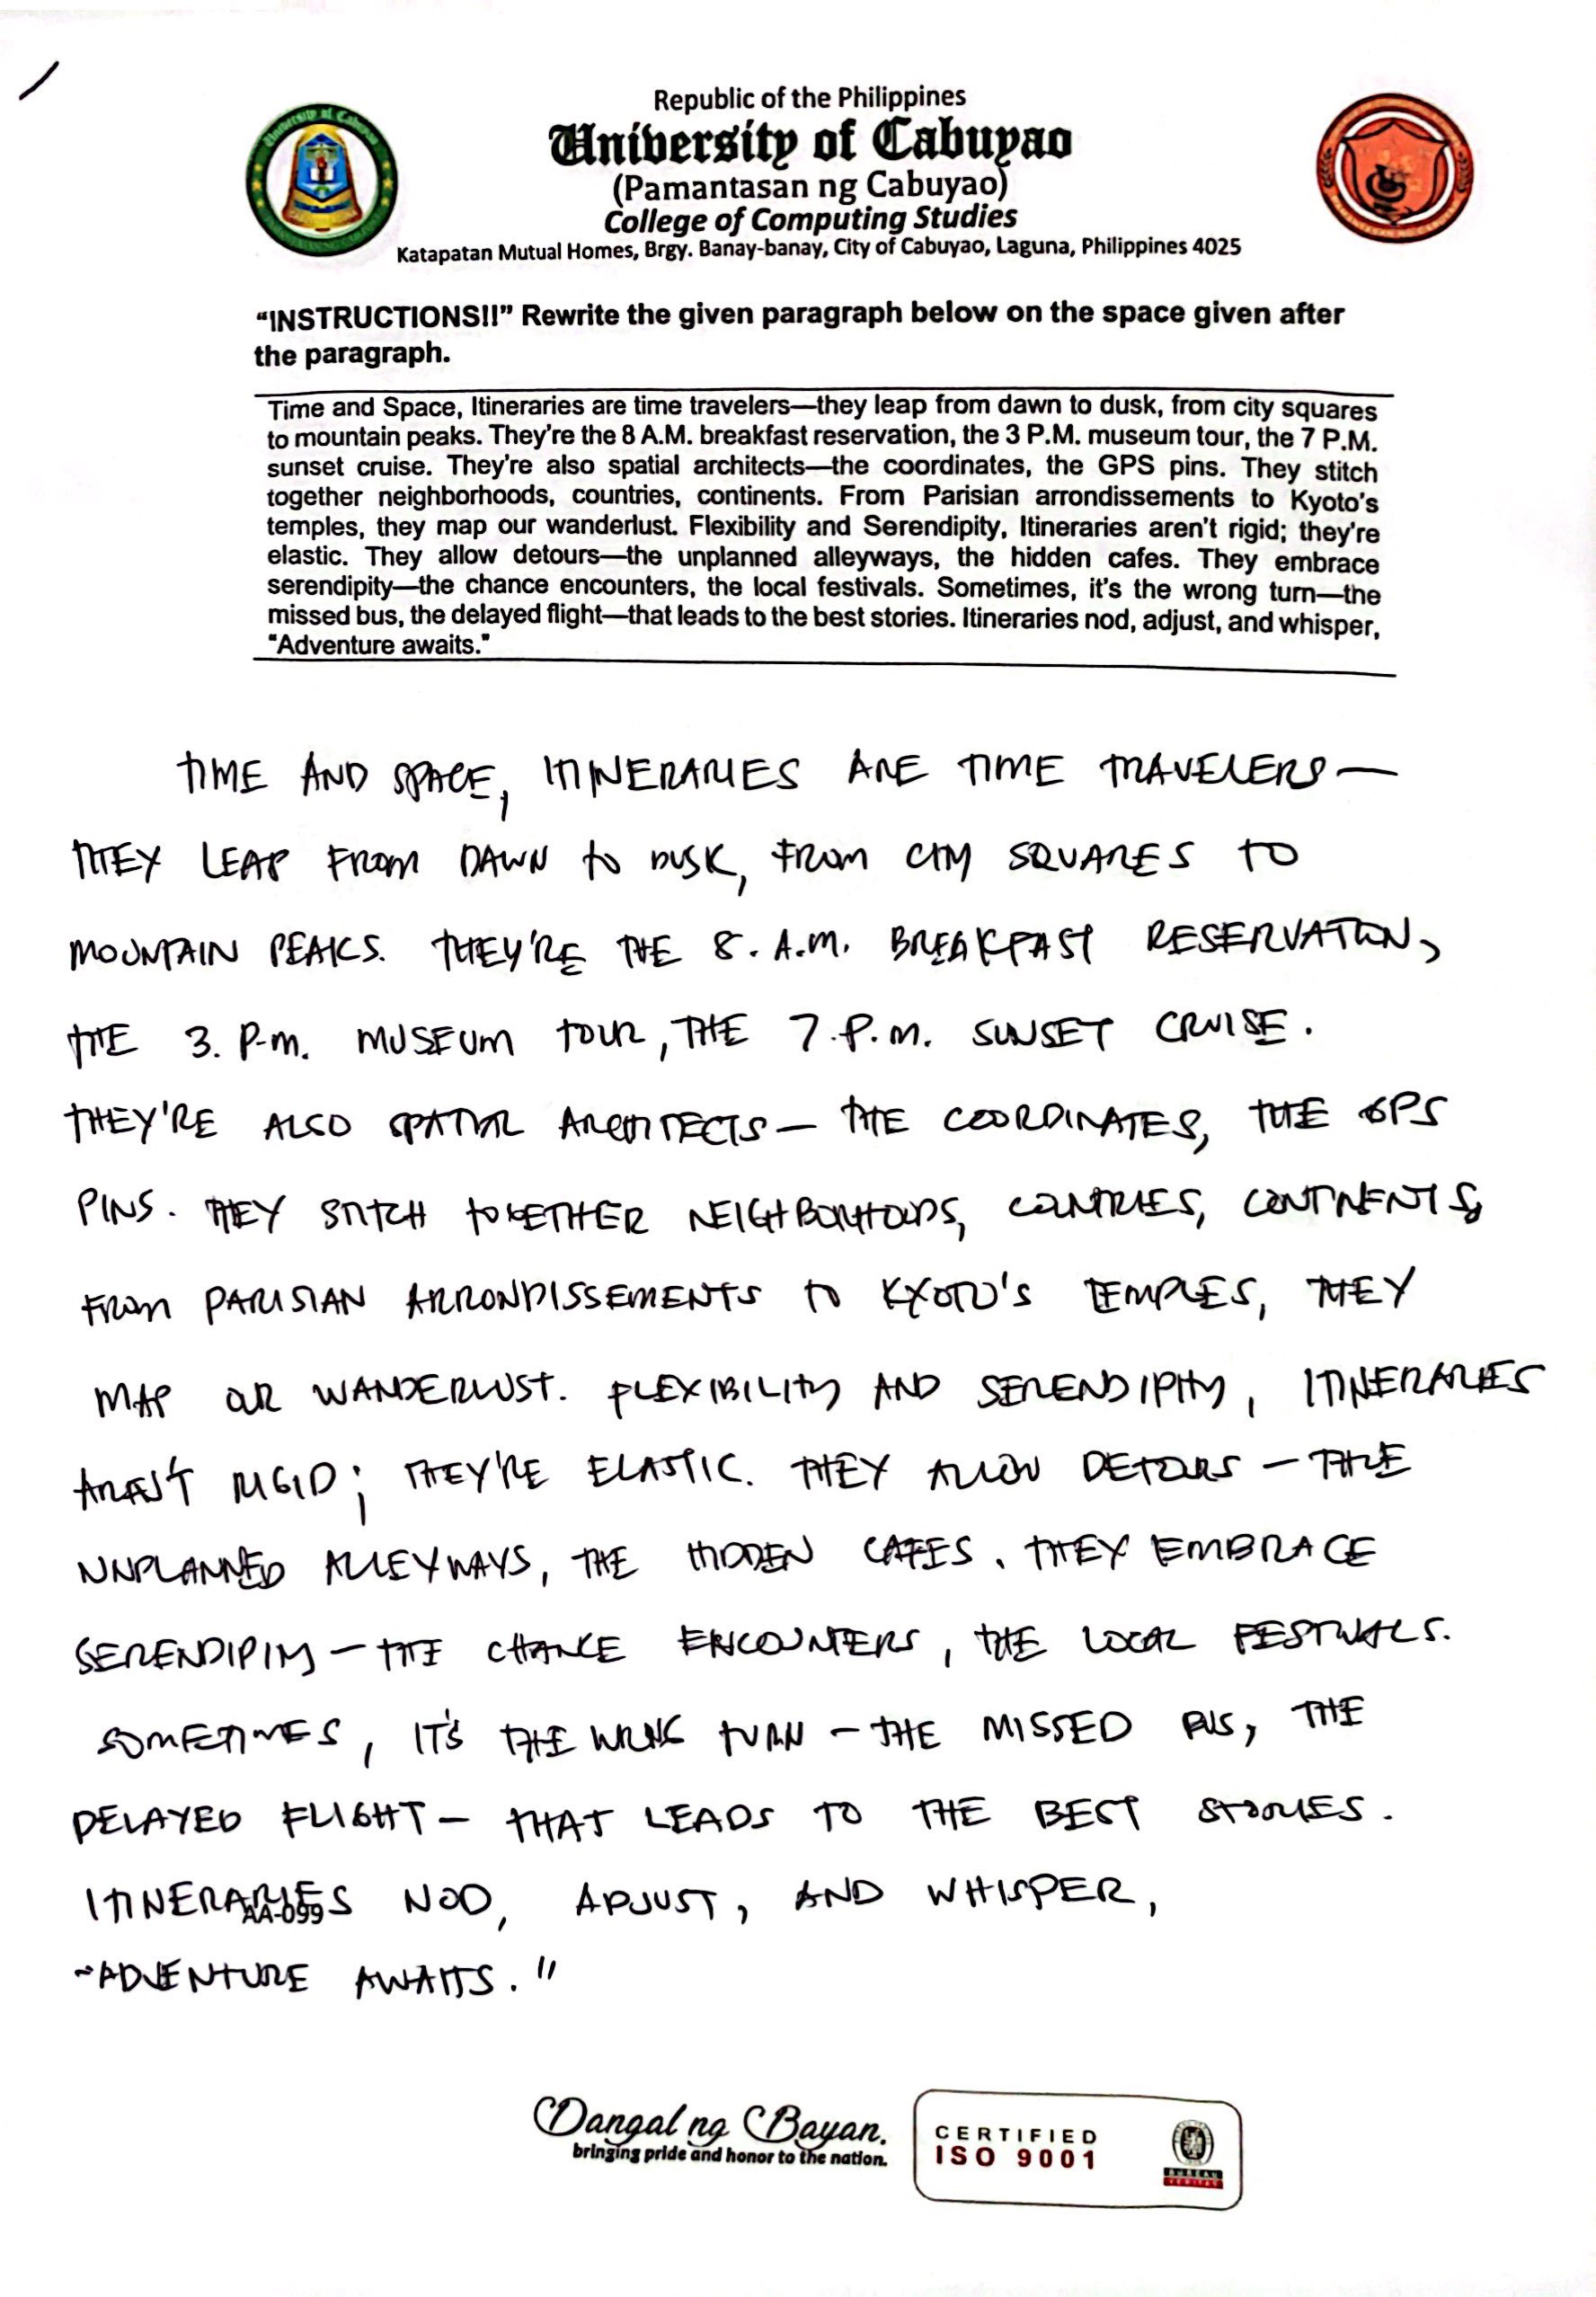 Republic of the Philippines
University of Cabuyao
(Pamantasan ng Cabuyao)
College of Computing Studies
Katapatan Mutual Homes, Brgy. Banay-banay, City of Cabuyao, Laguna, Philippines 4025
“INSTRUCTIONS!!” Rewrite the given paragraph below on the space given after
the paragraph.
Time and Space, Itineraries are time travelers—they leap from dawn to dusk, from city squares
to mountain peaks. They’re the 8 A.M. breakfast reservation, the 3 P.M. museum tour, the 7 P.M.
sunset cruise. They’re also spatial architects—the coordinates, the GPS pins. They stitch
together neighborhoods, countries, continents. From Parisian arrondissements to Kyoto’s
temples, they map our wanderlust. Flexibility and Serendipity, Itineraries aren’t rigid; they’re
elastic. They allow detours—the unplanned alleyways, the hidden cafes. They embrace
serendipity—the chance encounters, the local festivals. Sometimes, it’s the wrong turn—the
missed bus, the delayed flight—that leads to the best stories. Itineraries nod, adjust, and whisper,
"Adventure awaits."
TIME AND SPACE, ITINERARIES ARE TIME TRAVELERS—
THEY LEAP FROM DAWN TO DUSK, FROM CITY SQUARES TO
MOUNTAIN PEAKS. THEY'RE THE 8. A.M. BREAKFAST RESERVATION,
THE 3. P.M. MUSEUM TOUR, THE 7.P.M. SUNSET CRUISE.
THEY'RE ALSO SPATIAL ARCHITECTS— THE COORDINATES, THE GPS
PINS. THEY STITCH TOGETHER NEIGHBORHOODS, COUNTRIES, CONTINENTS
FROM PARISIAN ARRONDISSEMENTS TO KYOTO'S TEMPLES, THEY
MAP OUR WANDERLUST. FLEXIBILITY AND SERENDIPITY, ITINERARIES
AREN'T RIGID; THEY'RE ELASTIC. THEY ALLOW DETOURS — THE
UNPLANNED ALLEYWAYS, THE HIDDEN CAFES. THEY EMBRACE
SERENDIPITY — THE CHANCE ENCOUNTERS, THE LOCAL FESTIVALS.
SOMETIMES, IT'S THE WRONG TURN — THE MISSED BUS, THE
DELAYED FLIGHT— THAT LEADS TO THE BEST STORIES.
ITINERARIES NOD, ADJUST, AND WHISPER,
AA-099
"ADVENTURE AWAITS."
Dangal ng Bayan.
bringing pride and honor to the nation.
CERTIFIED
ISO 9001
BUREAU
VERITAS